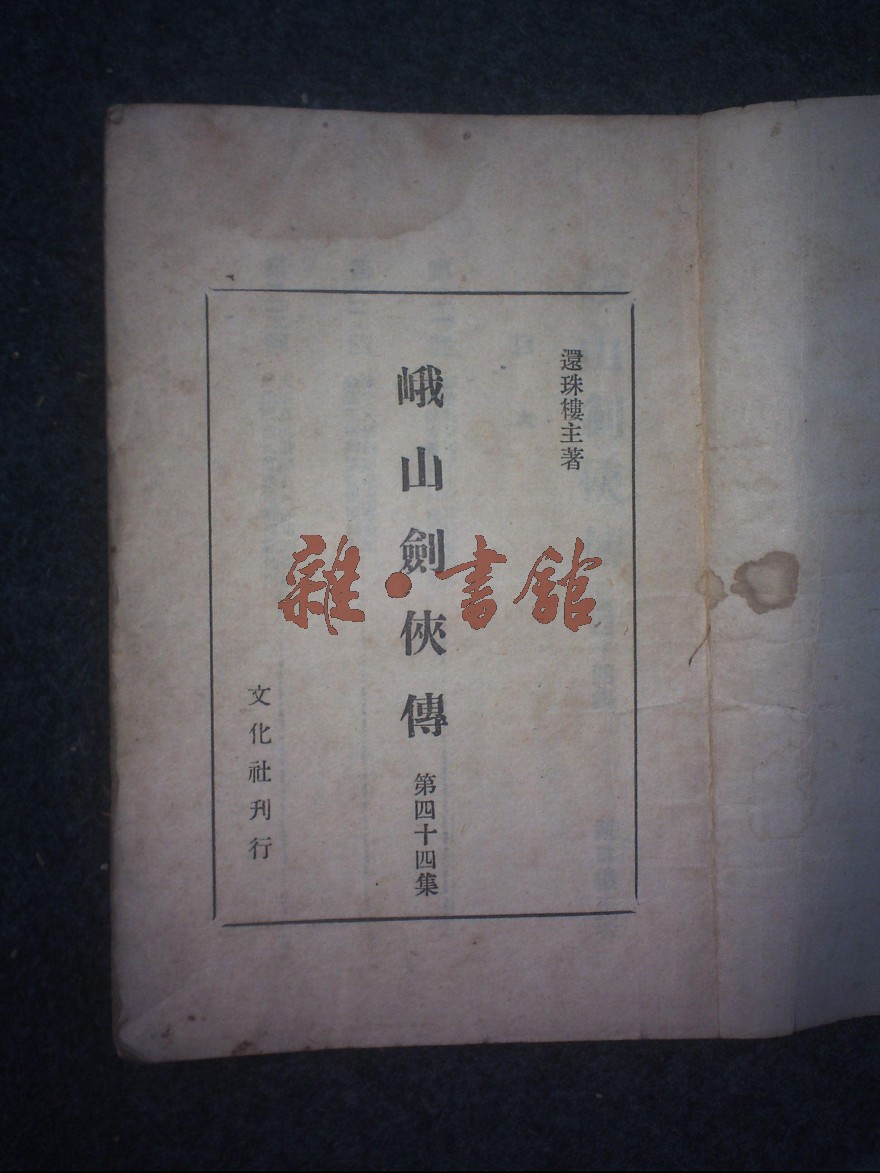 還珠樓主著
峨山劍俠傳
第四十四集
文化社刊行
雜·書館